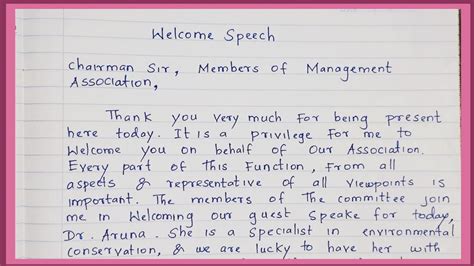 Welcome Speech
Chairman Sir, Members of Management
Association,
Thank you very much for being present
here today. It is a privilege for me to
Welcome you on behalf of Our Association.
Every part of this Function, From all
aspects & representative of all viewpoints is
important. The members of the committee join
me in Welcoming our guest Speake for today,
Dr. Aruna. She is a Specialist in environmental
conservation, & we are lucky to have her with